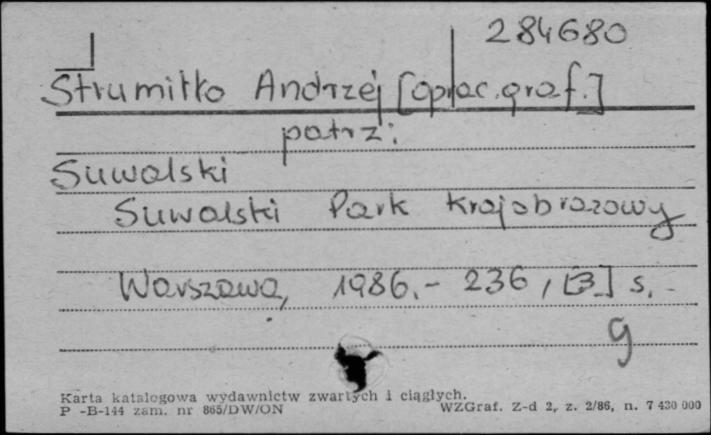 284680
Strumiłło Andrzej [oprac.graf.]
patrz:
Suwalski
Suwalski Park Krajobrazowy
Warszawa, 1986.- 236, [3] s.-
g
Karta katalogowa wydawnictw zwartych i ciągłych.
P -B-144 zam. nr 865/DW/ON WZGraf. Z-d 2, z. 2/86, n. 7 430 000